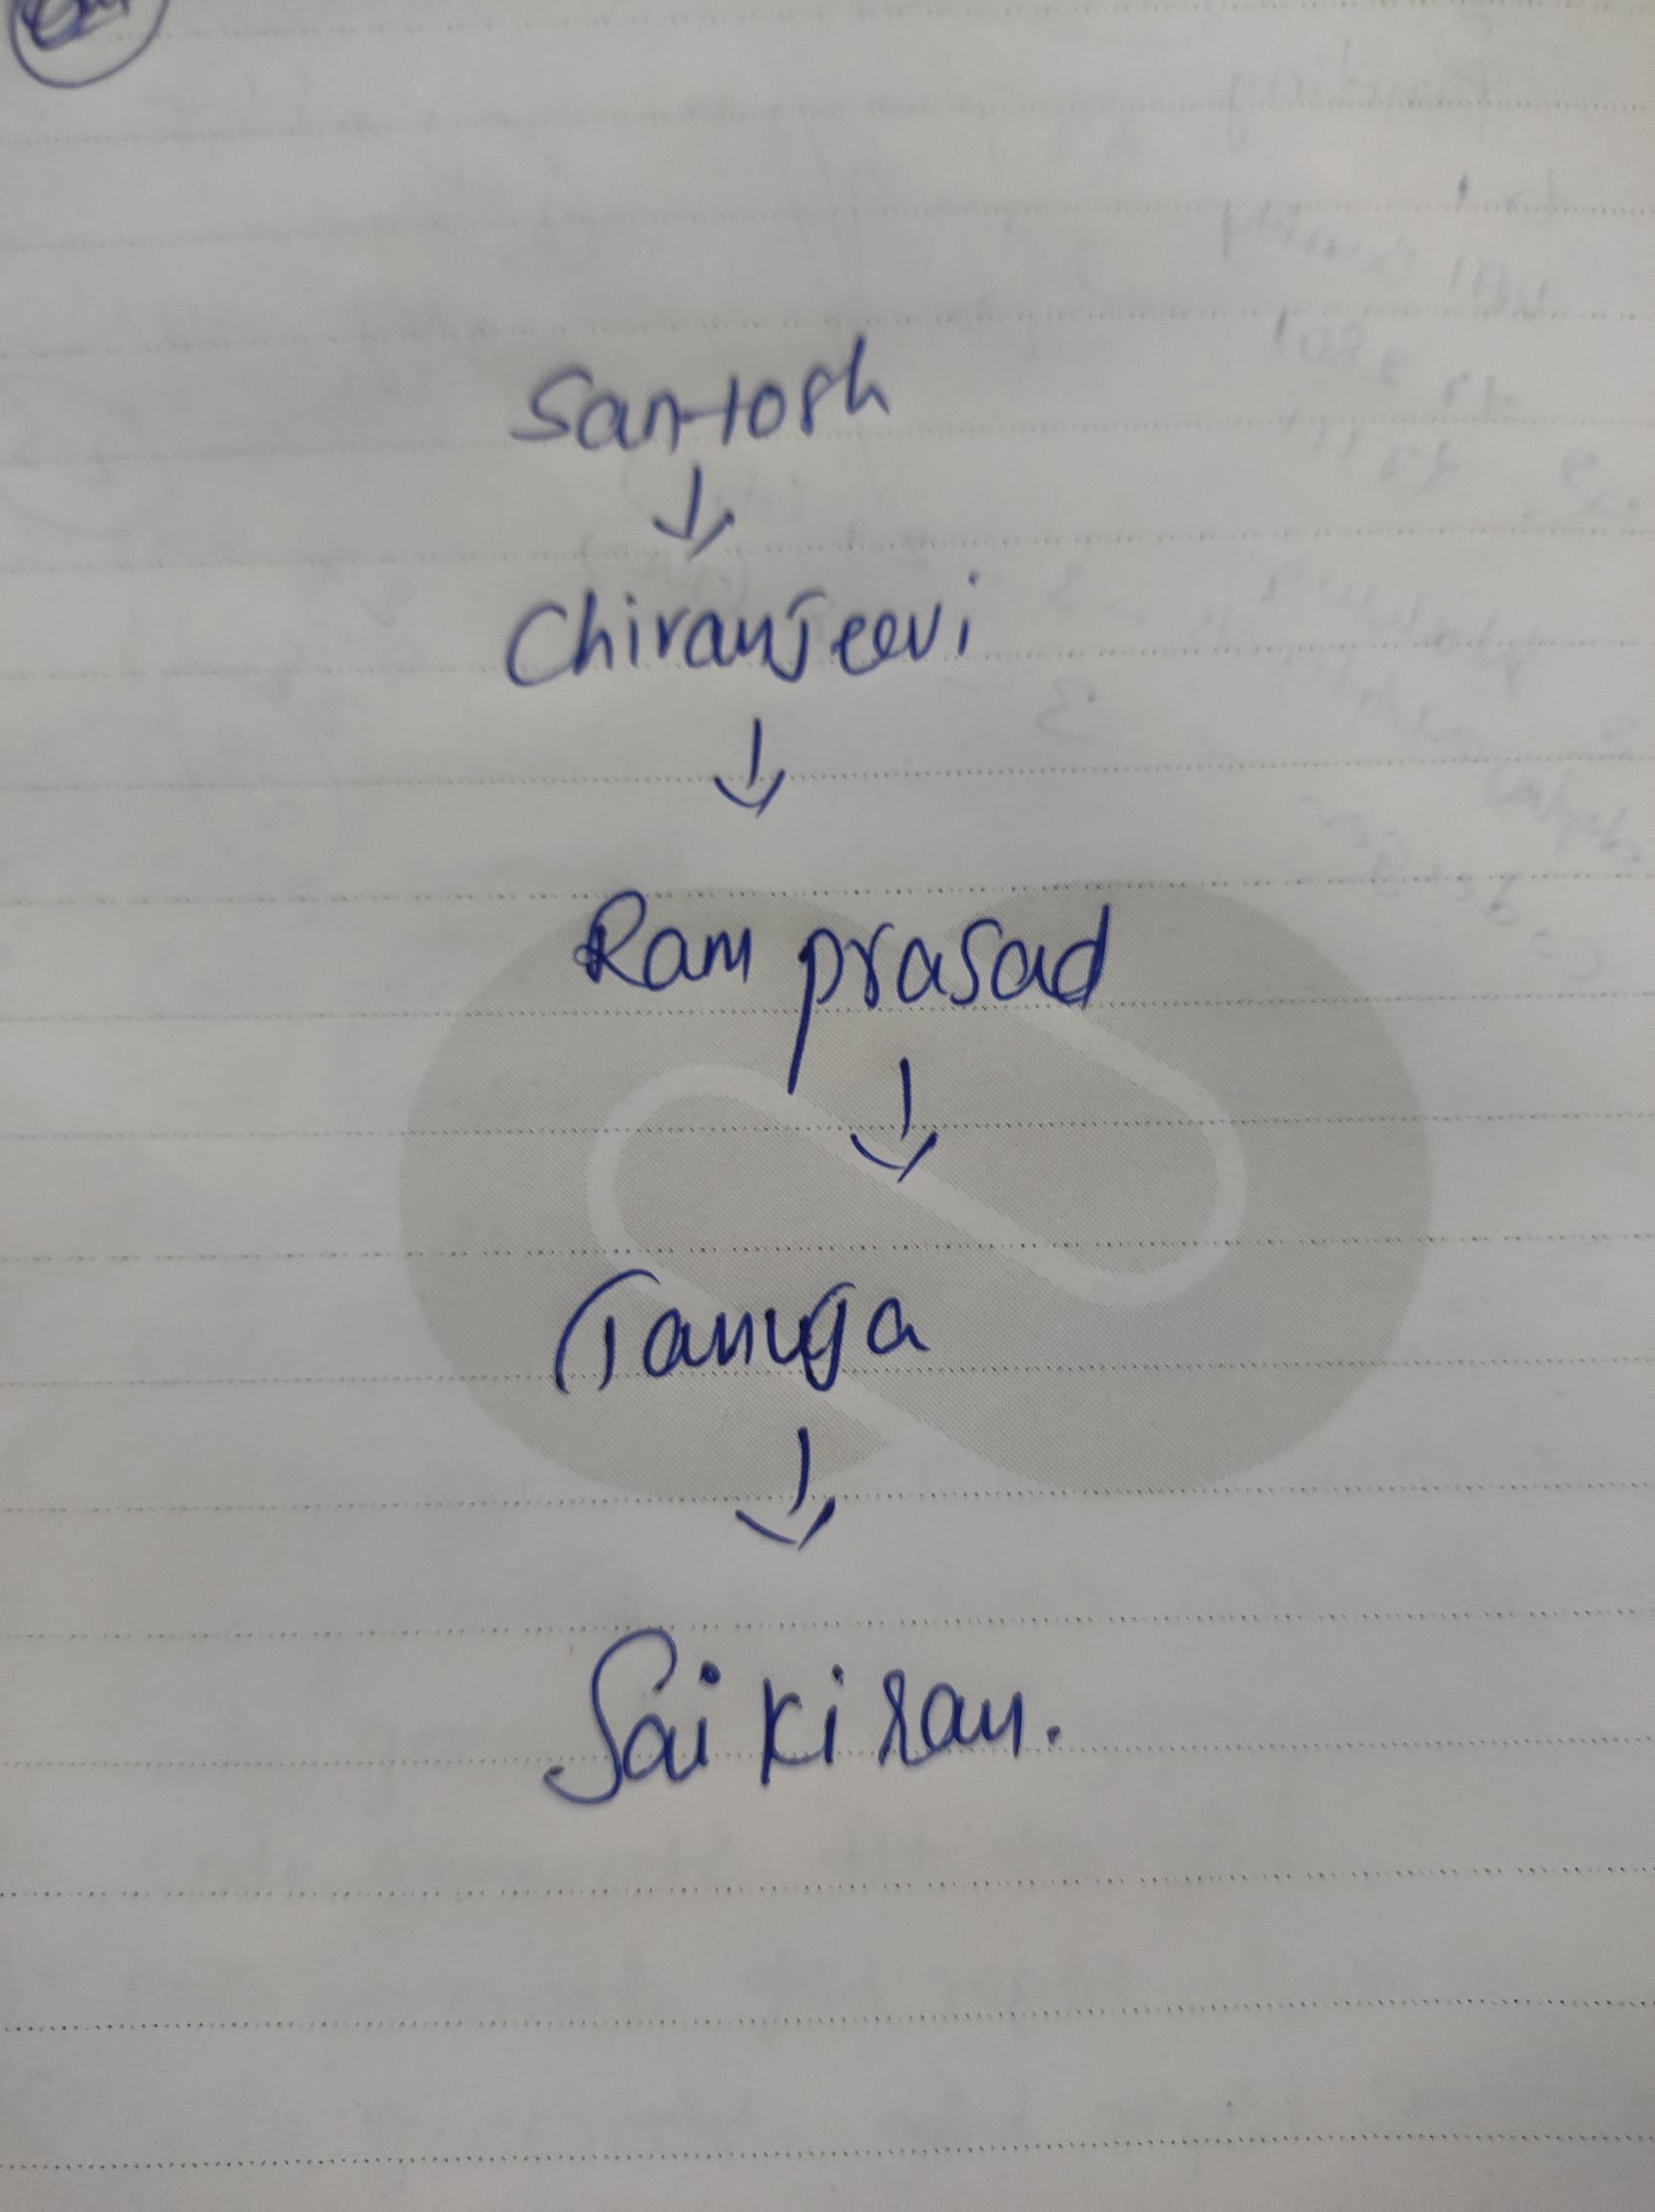 Santosh
↓
Chiranjeevi
↓
Ram prasad
↓
Tanuja
↓
Sai kiran.